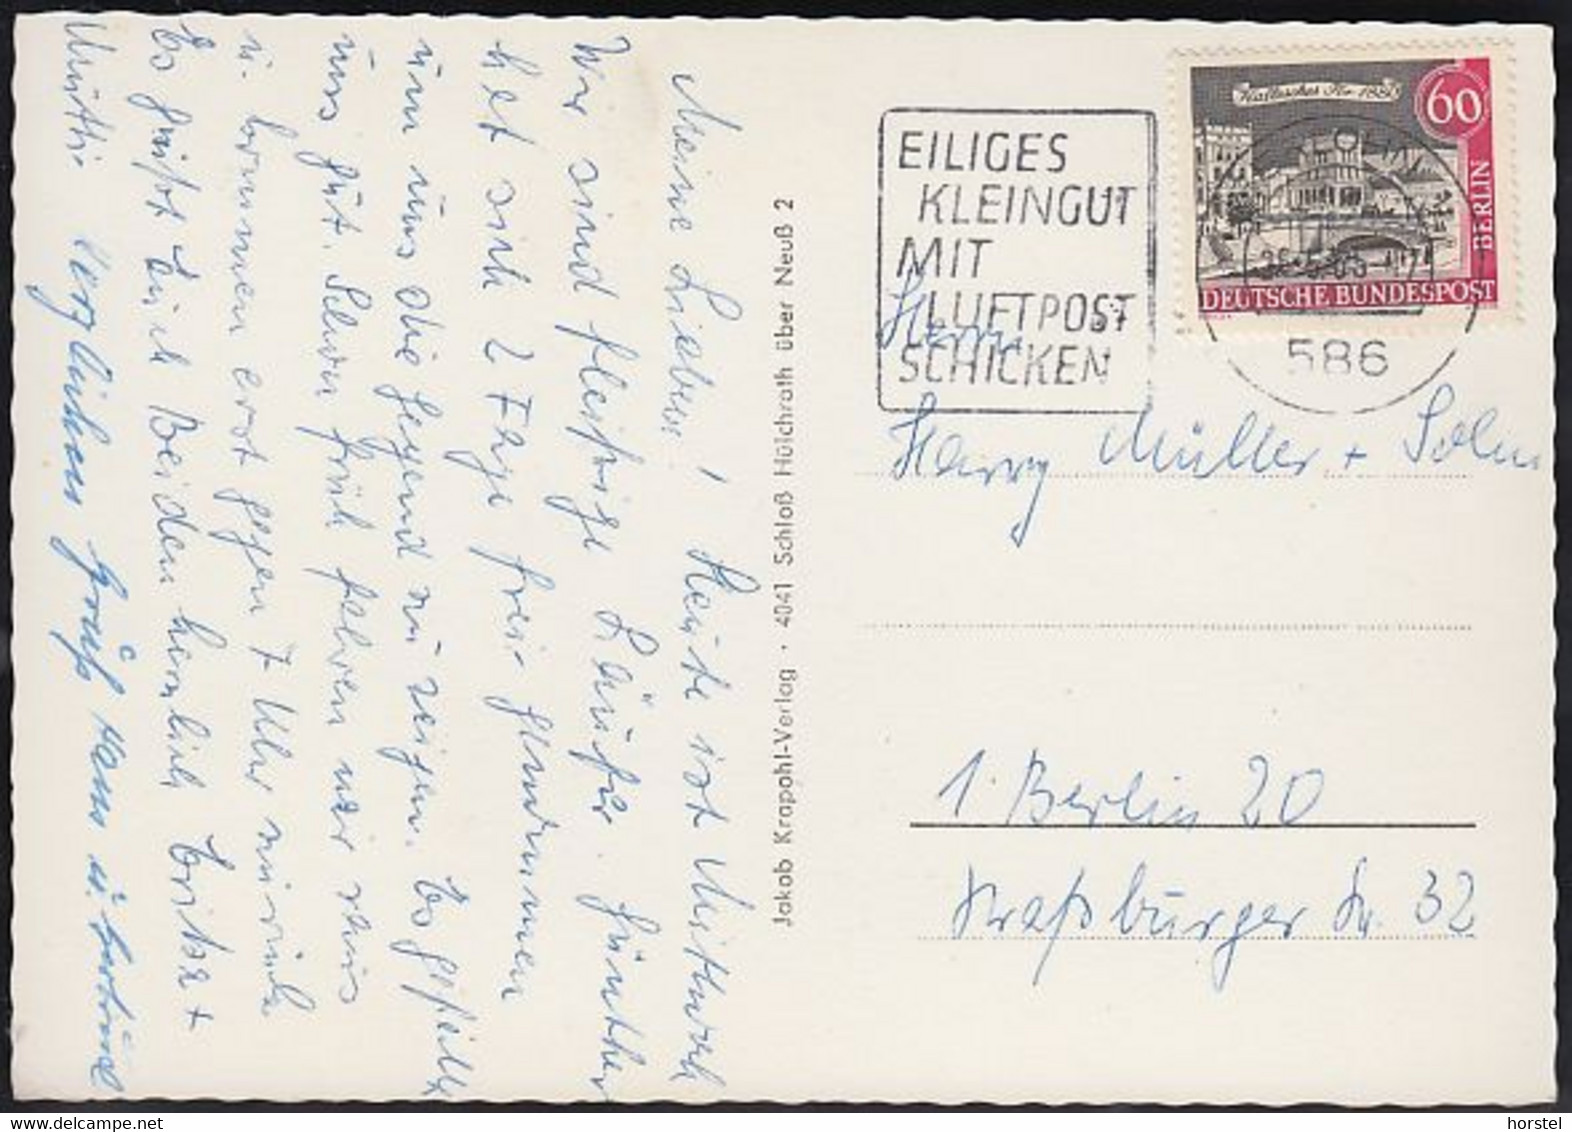 Meine Lieben! Heute ist Mittwoch
Wir sind fleißige Läufer. Günther
hat sich 2 Tage frei genommen
um uns die Gegend zu zeigen. Es gefällt
uns gut. Schon früh fahren wir raus
u. kommen erst gegen 7 Uhr zurück
Es grüßt Euch Beiden herzlich +
Mutti. Herzlichen Gruß
Jakob Krapohl-Verlag · 4041 Schloß Hülchrath über Neuß 2
Hallesches Tor 1880
60
BERLIN
DEUTSCHE BUNDESPOST
EILIGES
KLEINGUT
MIT
LUFTPOST
SCHICKEN
586
Herrn
Harry Müller + Sohn
1 Berlin 20
Straßburger Str. 32
horstel